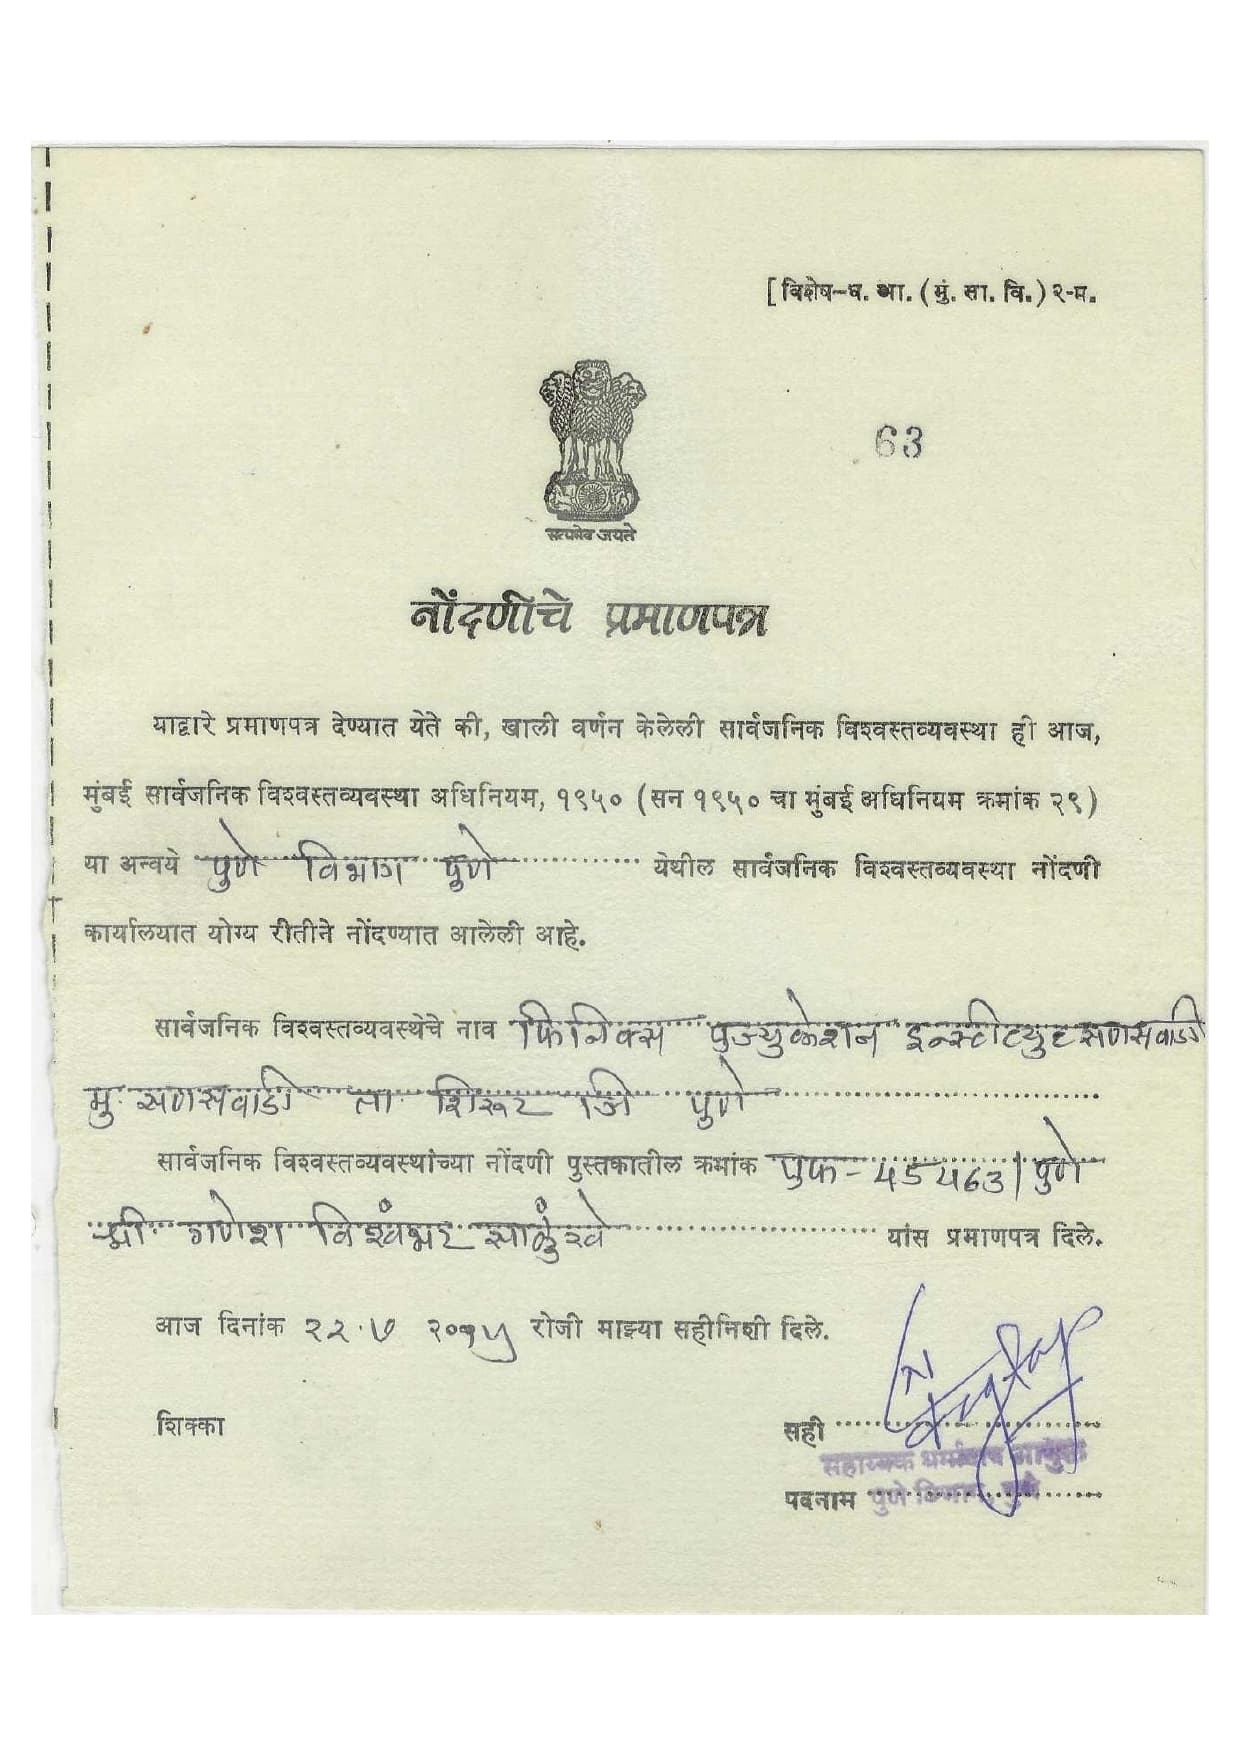 [विशेष-ध. आ. (मुं. सा. वि.) २-म.
63
सत्यमेव जयते
नोंदणीचे प्रमाणपत्र
याद्वारे प्रमाणपत्र देण्यात येते की, खाली वर्णन केलेली सार्वजनिक विश्वस्तव्यवस्था ही आज,
मुंबई सार्वजनिक विश्वस्तव्यवस्था अधिनियम, १९५० (सन १९५० चा मुंबई अधिनियम क्रमांक २९)
या अन्वये पुणे विभाग पुणे येथील सार्वजनिक विश्वस्तव्यवस्था नोंदणी
कार्यालयात योग्य रीतीने नोंदण्यात आलेली आहे.
सार्वजनिक विश्वस्तव्यवस्थेचे नाव फिनिक्स एज्युकेशन इन्स्टीट्युट सणसवाडी
मु. सणसवाडी ता. शिरूर जि पुणे
सार्वजनिक विश्वस्तव्यवस्थांच्या नोंदणी पुस्तकातील क्रमांक एफ - 45463/पुणे
श्री. गणेश विश्वंभर साळुंखे यांस प्रमाणपत्र दिले.
आज दिनांक २२.७ २०१५ रोजी माझ्या सहीनिशी दिले.
शिक्का
सही
सहाय्यक धर्मादाय आयुक्त
पदनाम पुणे विभाग, पुणे